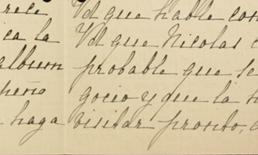 rece
ca la
album
haga
Vd que hable con
Vd que Nicolas
probable que se
gocio y que la
visitar pronto,